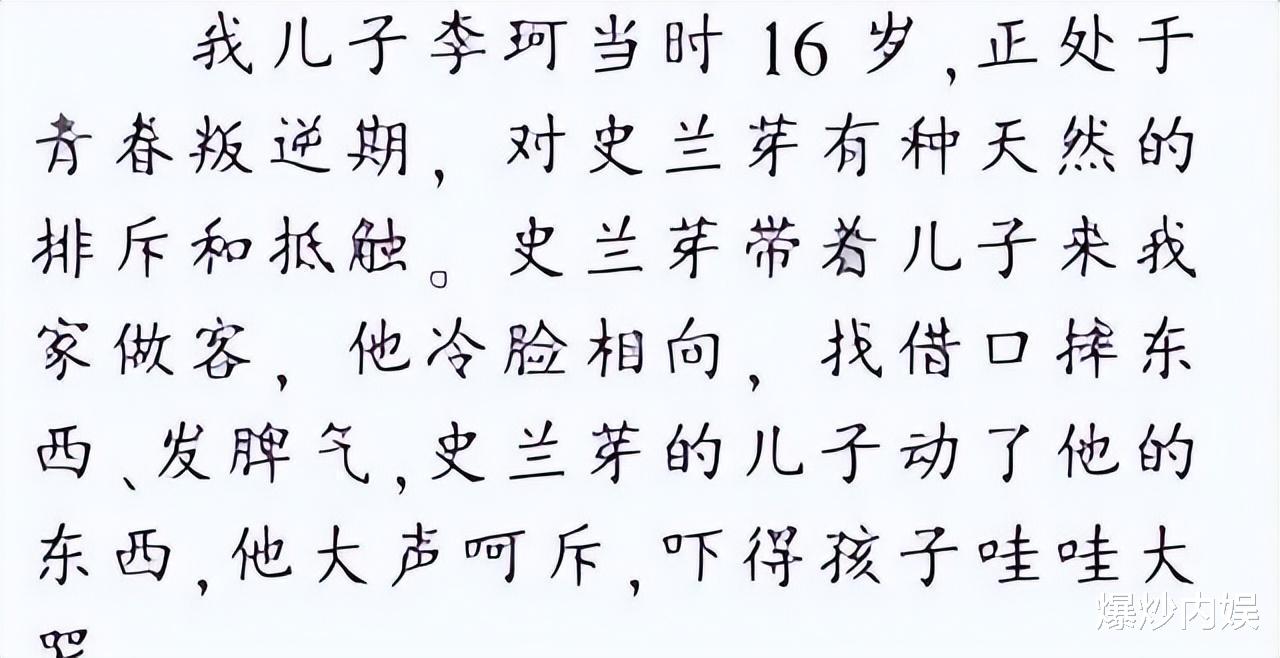 我儿子李珂当时16岁,正处于
青春叛逆期,对史兰芽有种天然的
排斥和抵触。史兰芽带着儿子来我
家做客,他冷脸相向,找借口摔东
西、发脾气,史兰芽的儿子动了他的
东西,他大声呵斥,吓得孩子哇哇大
爆炒内娱